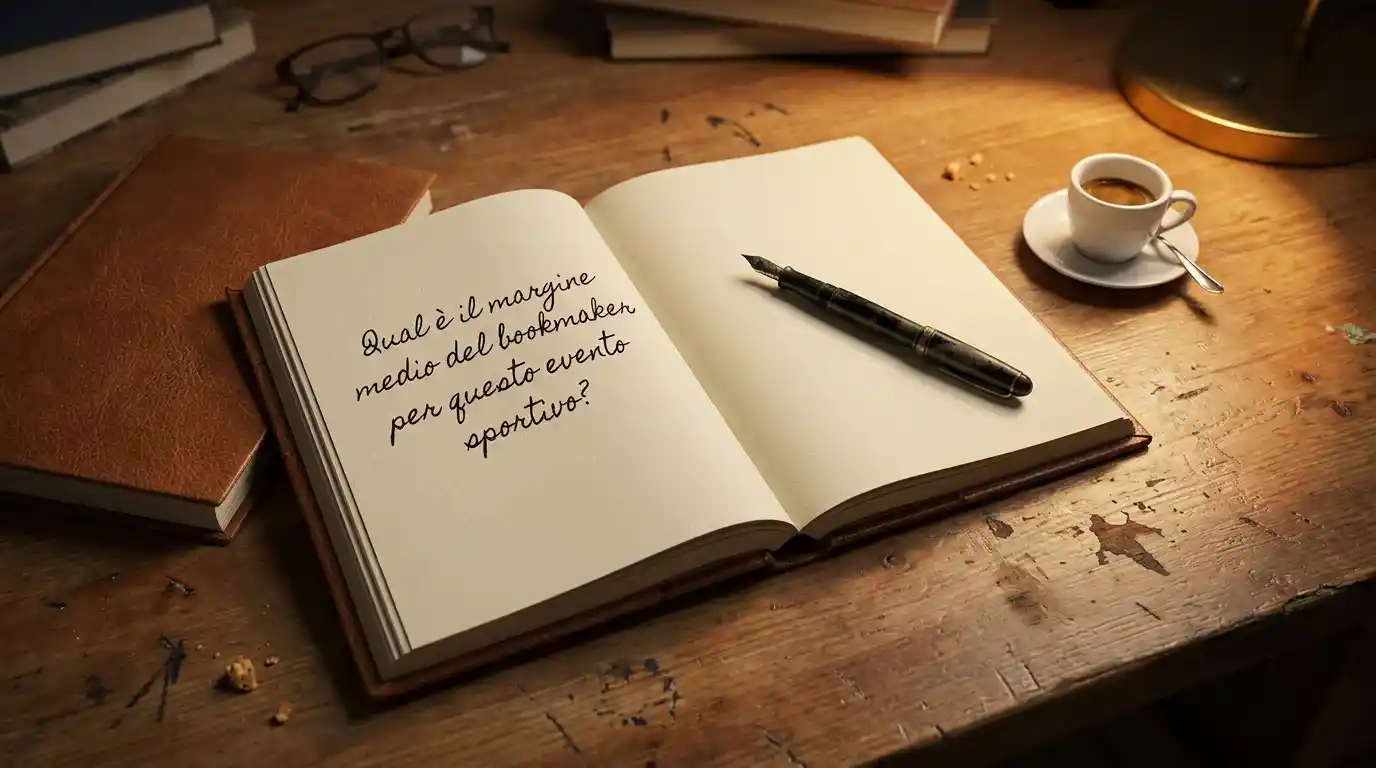 Qual è il margine
medio del bookmaker
per questo evento
sportivo?